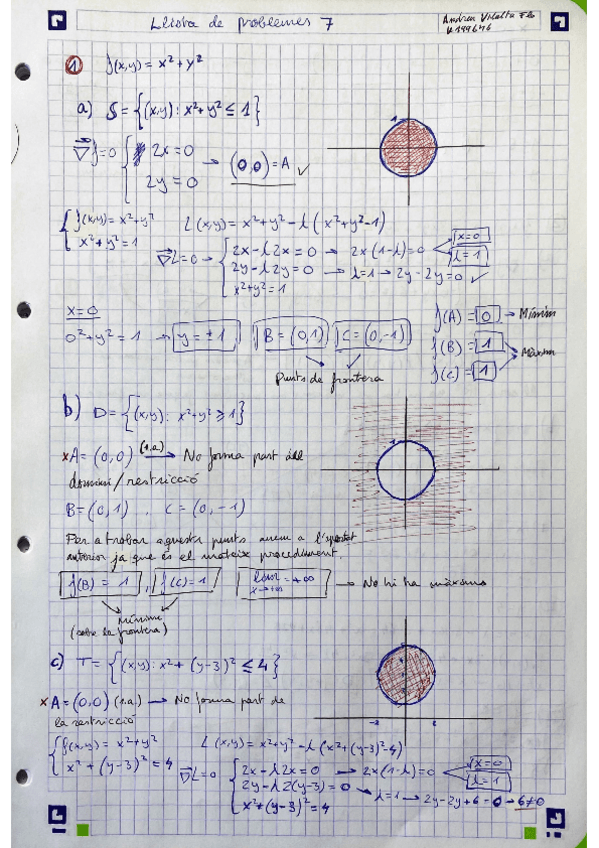 Llista de problemes 7
Andreu Vilalta
① f(x,y) = x² + y²
a) S = {(x,y) : x²+y² ≤ 1}
∇f=0 { 2x=0 → (0,0) = A ✓
2y=0
1
{ f(x,y) = x²+y² L(x,y) = x²+y² - λ(x²+y²-1)
x²+y² = 1
∇L=0 → { 2x-λ2x=0 → 2x(1-λ)=0 x=0
λ=1
2y-λ2y=0 → λ=1 → 2y-2y=0 ✓
x²+y²=1
x=0
0²+y²=1 → y=±1 B=(0,1) C=(0,-1)
Punts de frontera
f(A) = 0 → Mínim
f(B) = 1
f(C) = 1 Màxim
b) D = {(x,y) : x²+y² ≥ 1}
1
x A = (0,0) (1.a.) → No forma part del
domini/restricció
B=(0,1) , C=(0,-1)
Per a trobar aquests punts anem a l'apartat
anterior ja que és el mateix procediment.
f(B) = 1 , f(C) = 1 lim x→+∞ = +∞ → No hi ha màxims
mínims
(sobre la frontera)
c) T = {(x,y) : x²+(y-3)² ≤ 4}
x A = (0,0) (1.a.) → No forma part de
la restricció
-2 2
{ f(x,y) = x²+y² L(x,y) = x²+y²-λ(x²+(y-3)²-4)
x²+(y-3)²=4
∇L=0 { 2x-λ2x=0 → 2x(1-λ)=0 x=0
λ=1
2y-λ2(y-3)=0 → λ=1 → 2y-2y+6=0 → 6≠0
x²+(y-3)²=4